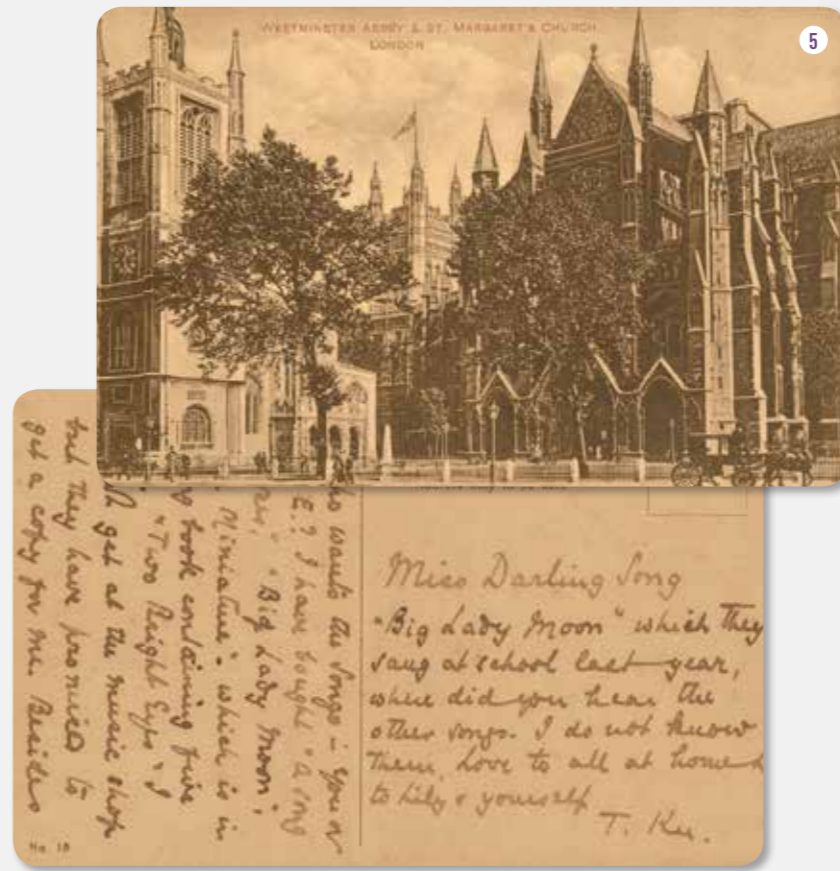 WESTMINSTER ABBEY & ST. MARGARET'S CHURCH.
LONDON
5
who wants the songs – you or
E.? I have bought "A song
"Big Lady Moon",
Miniature" which is in
book containing five
"Two Bright Eyes" I
get at the music shop
but they have promised to
get a copy for me. Besides
No 18
Miss Darling Song
"Big Lady Moon" which they
sang at school last year,
where did you hear the
other songs. I do not know
them, love to all at home &
to Lily & yourself
T. Ku.